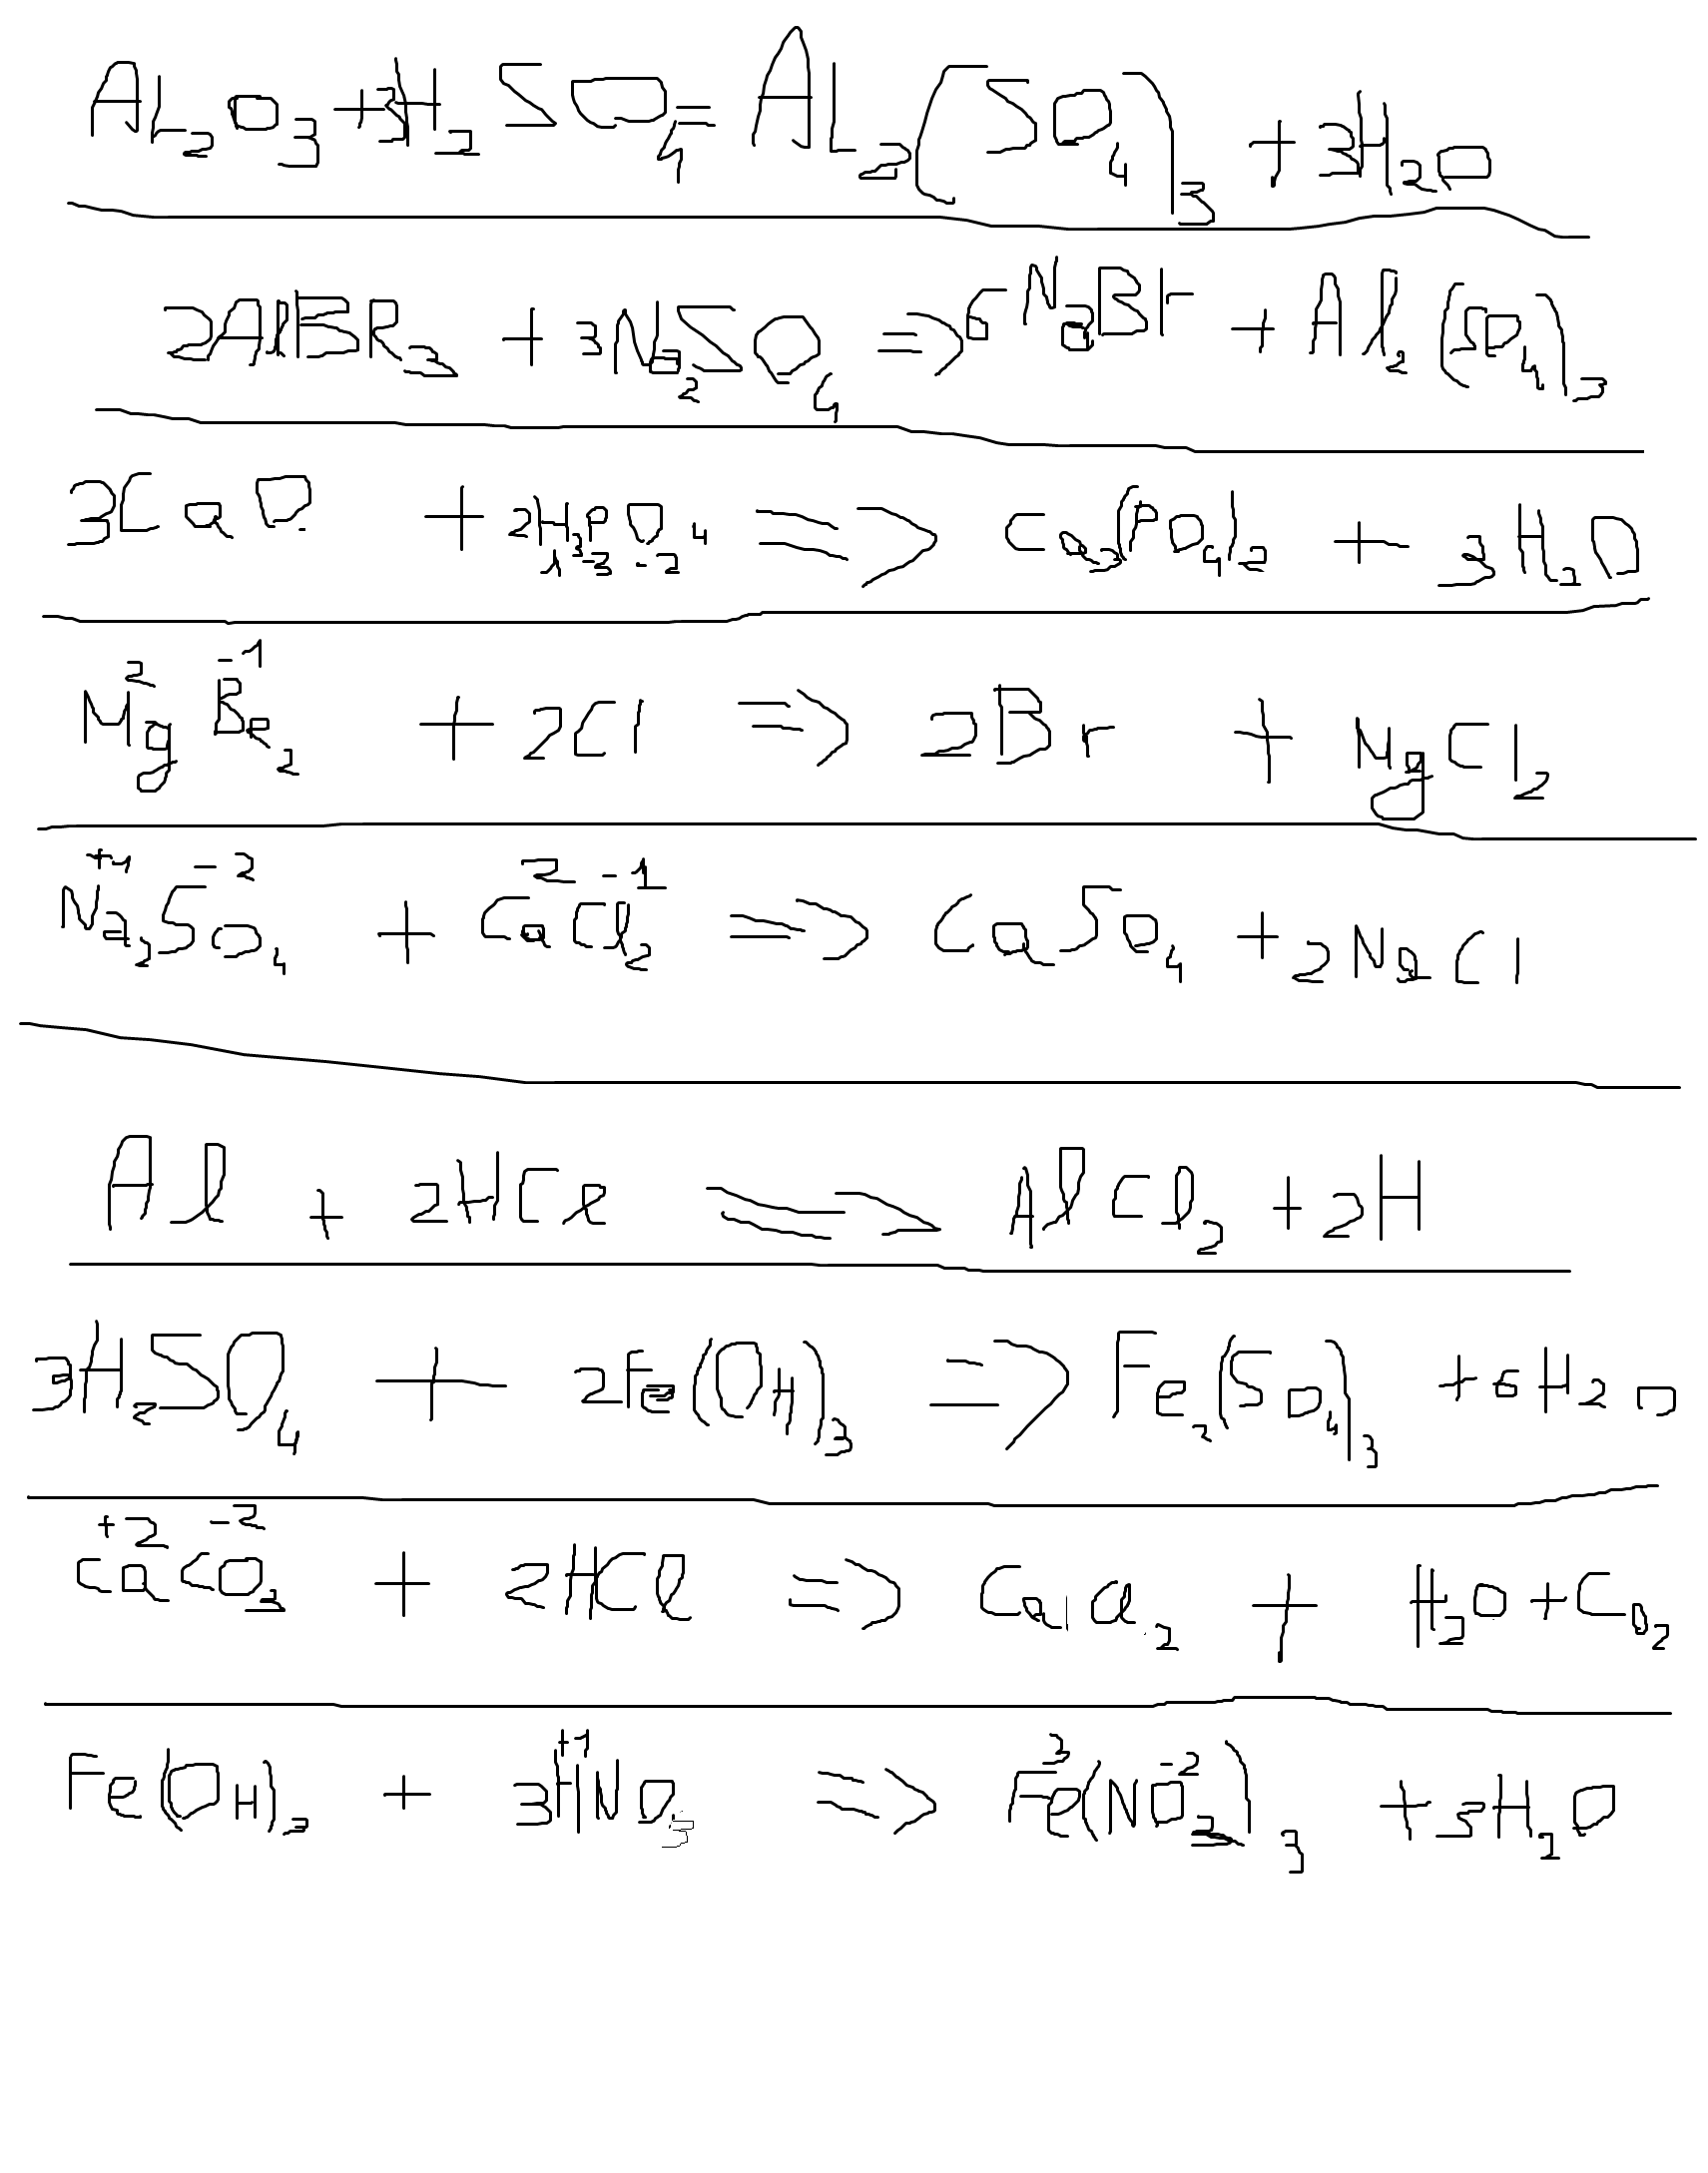 AL₂O₃ + 3H₂SO₄ = AL₂(SO₄)₃ + 3H₂O
2AlBR₃ + 3Na₂SO₄ => 6NaBr + Al₂(SO₄)₃
3CaO + 2H₃PO₄ => Ca₃(PO₄)₂ + 3H₂O
1 -3 -2
2 -1
MgBr₂ + 2Cl => 2Br + MgCl₂
+1 -2 2 -1
Na₂SO₄ + CaCl₂ => CaSO₄ + 2NaCl
Al + 2HCl => AlCl₂ + 2H
3H₂SO₄ + 2Fe(OH)₃ => Fe₂(SO₄)₃ + 6H₂O
+2 -2
CaCO₃ + 2HCl => CaCl₂ + H₂O + CO₂
+1 3 -2
Fe(OH)₃ + 3HNO₃ => Fe(NO₃)₃ + 3H₂O